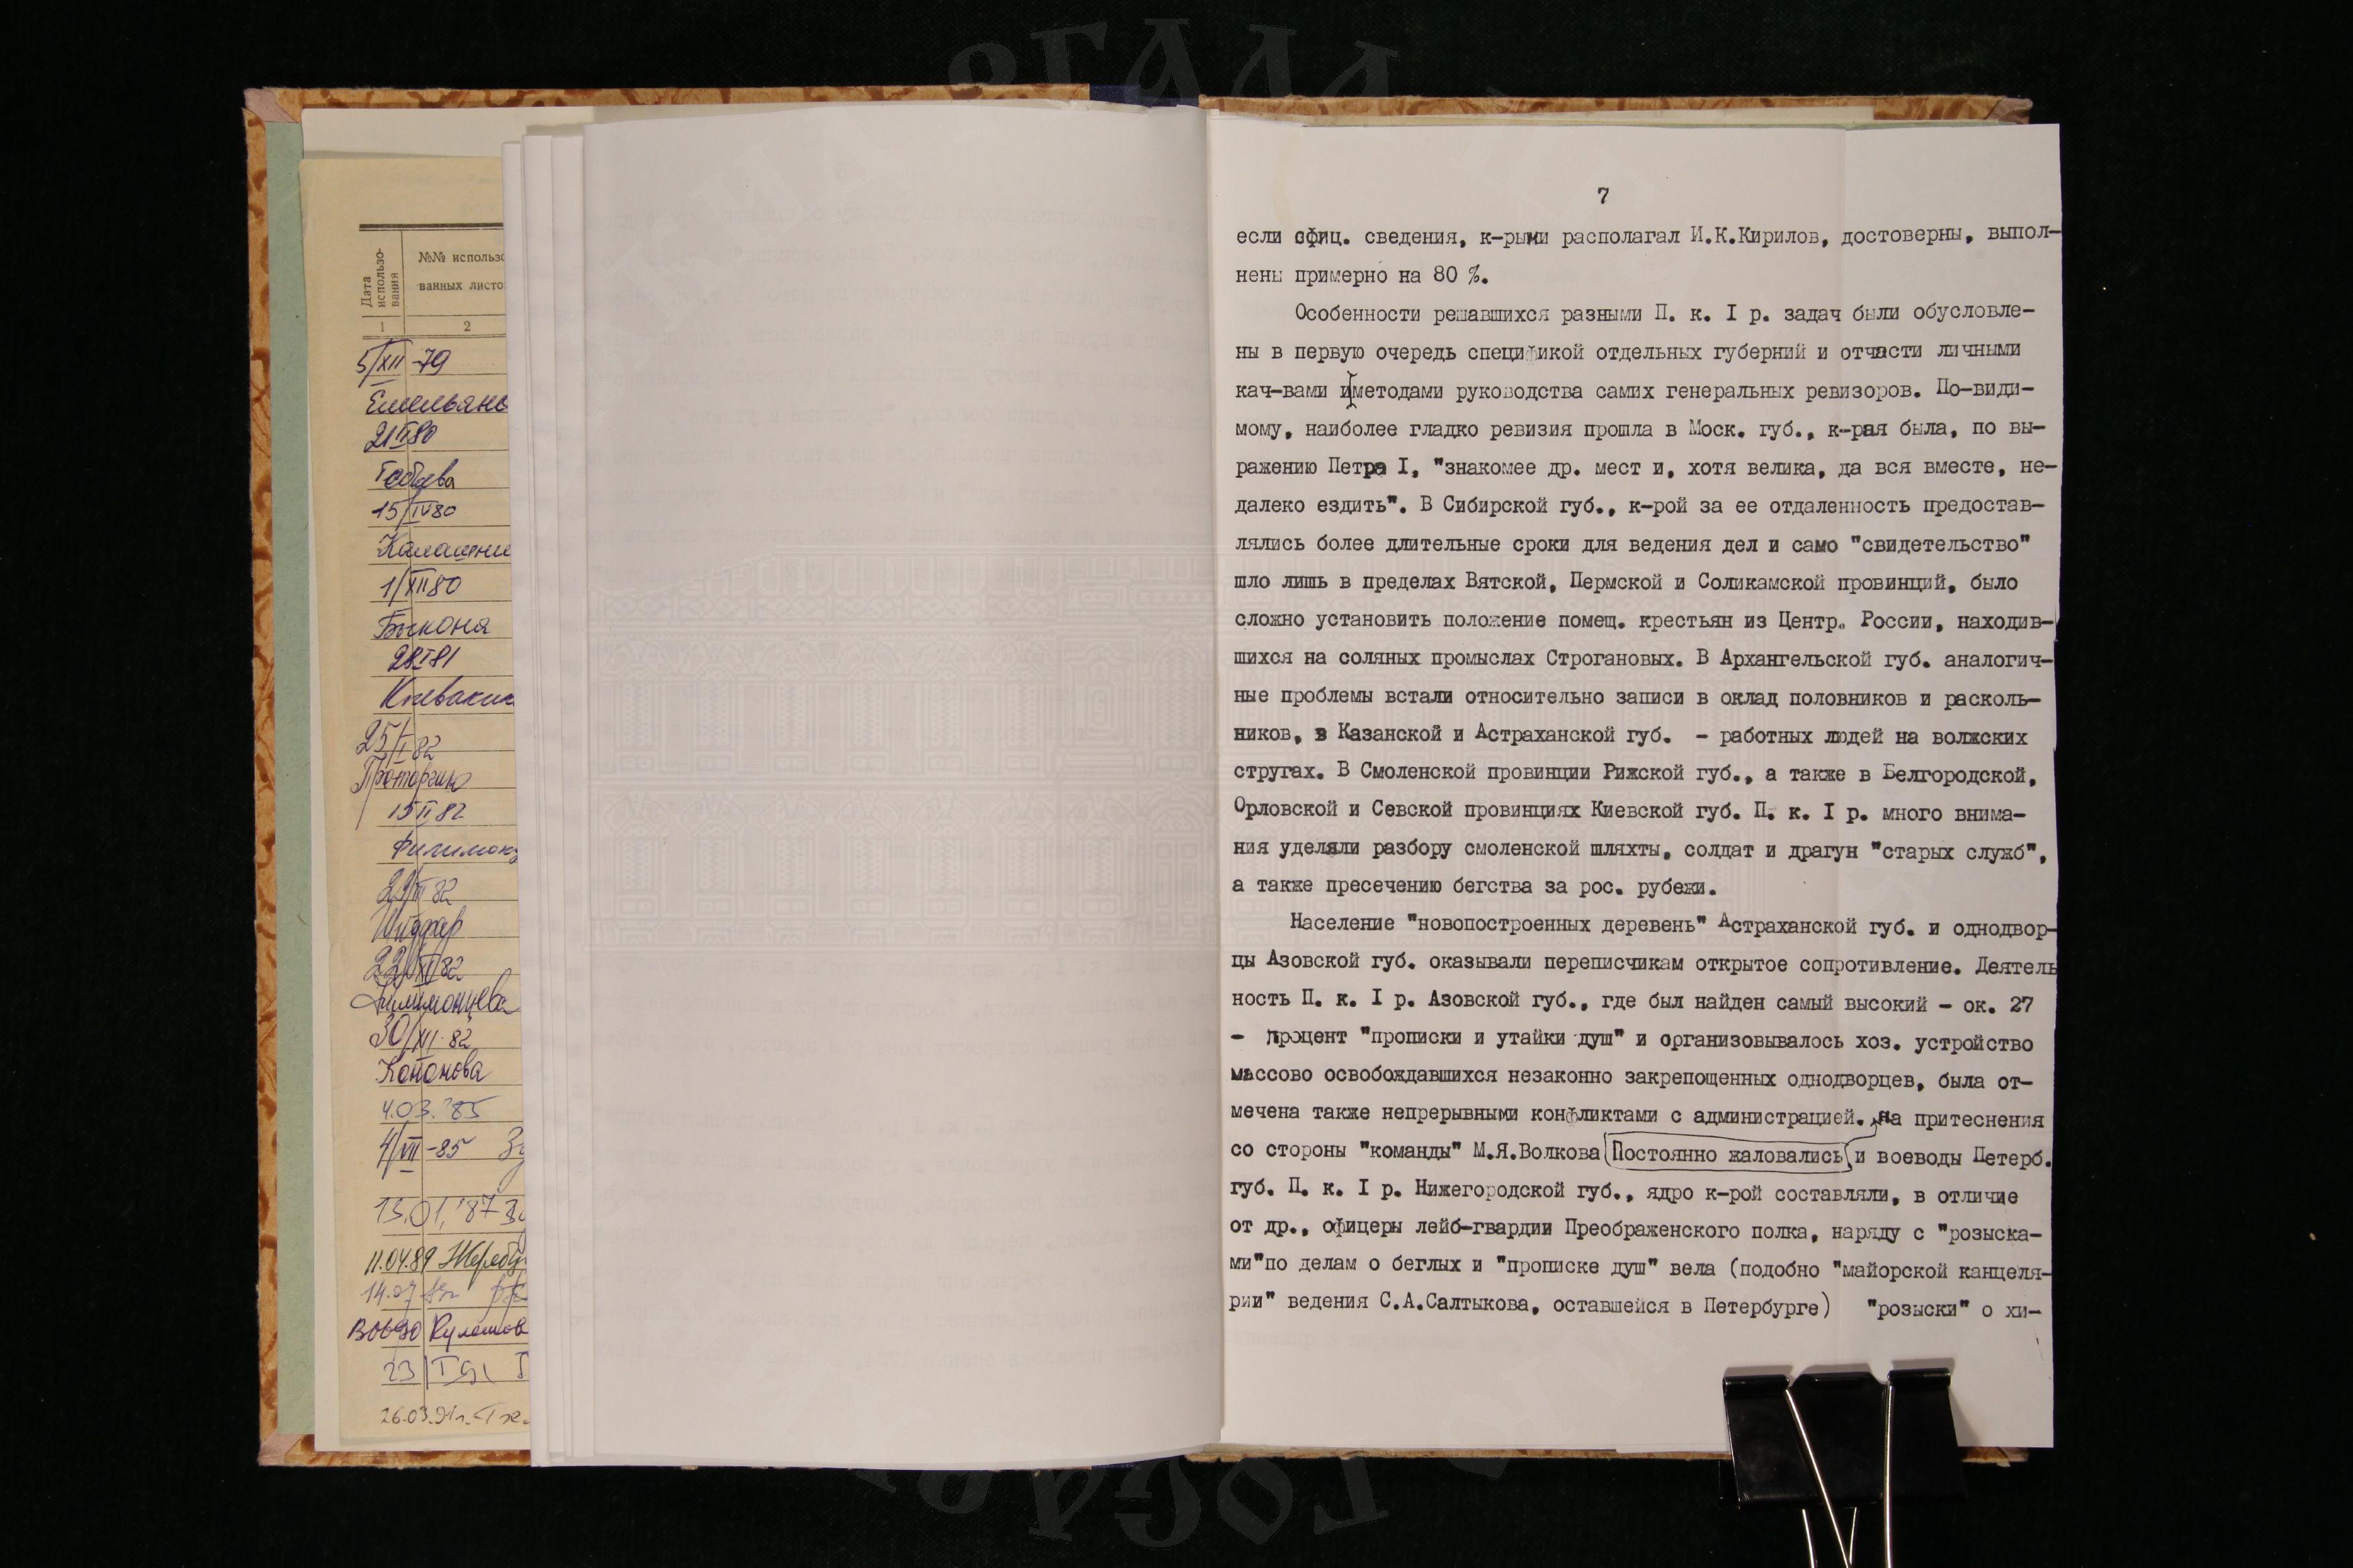 Дата использо-вания
№№ использо
ванных листо
1
2
5/XII-79
21 II 80
15/IV 80
1/XII 80
Быкона
28 I 81
25/I 82
15 II 82
22/XI 82
Филимонцева
30/XII-82
Кононова
4.03.'85
4/VII-85
13.01.'87
11.04.89
26.03.91г.
7
если офиц. сведения, к-рыми располагал И.К.Кирилов, достоверны, выпол-
нены примерно на 80 %.
Особенности решавшихся разными П. к. I р. задач были обусловле-
ны в первую очередь спецификой отдельных губерний и отчасти личными
кач-вами и методами руководства самих генеральных ревизоров. По-види-
мому, наиболее гладко ревизия прошла в Моск. губ., к-рая была, по вы-
ражению Петра I, "знакомее др. мест и, хотя велика, да вся вместе, не-
далеко ездить". В Сибирской губ., к-рой за ее отдаленность предостав-
лялись более длительные сроки для ведения дел и само "свидетельство"
шло лишь в пределах Вятской, Пермской и Соликамской провинций, было
сложно установить положение помещ. крестьян из Центр. России, находив-
шихся на соляных промыслах Строгановых. В Архангельской губ. аналогич-
ные проблемы встали относительно записи в оклад половников и расколь-
ников, в Казанской и Астраханской губ. - работных людей на волжских
стругах. В Смоленской провинции Рижской губ., а также в Белгородской,
Орловской и Севской провинциях Киевской губ. П. к. I р. много внима-
ния уделяли разбору смоленской шляхты, солдат и драгун "старых служб",
а также пресечению бегства за рос. рубежи.
Население "новопостроенных деревень" Астраханской губ. и однодвор-
цы Азовской губ. оказывали переписчикам открытое сопротивление. Деятель
ность П. к. I р. Азовской губ., где был найден самый высокий - ок. 27
- процент "прописки и утайки душ" и организовывалось хоз. устройство
массово освобождавшихся незаконно закрепощенных однодворцев, была от-
мечена также непрерывными конфликтами с администрацией. на притеснения
со стороны "команды" М.Я.Волкова Постоянно жаловались и воеводы Петерб.
губ. П. к. I р. Нижегородской губ., ядро к-рой составляли, в отличие
от др., офицеры лейб-гвардии Преображенского полка, наряду с "розыска-
ми"по делам о беглых и "прописке душ" вела (подобно "майорской канцеля-
рии" ведения С.А.Салтыкова, оставшейся в Петербурге) "розыски" о хи-